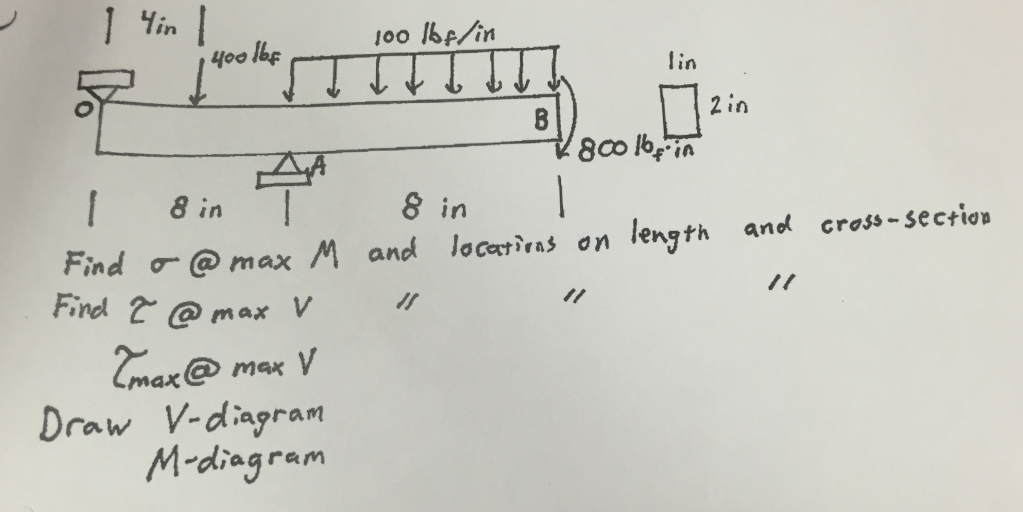 4in
400 lbf
100 lbf/in
1in
2 in
O
B
800 lbf·in
A
8 in
8 in
Find σ @ max M and locations on length and cross-section
Find τ @ max V " " "
τmax @ max V
Draw V-diagram
M-diagram